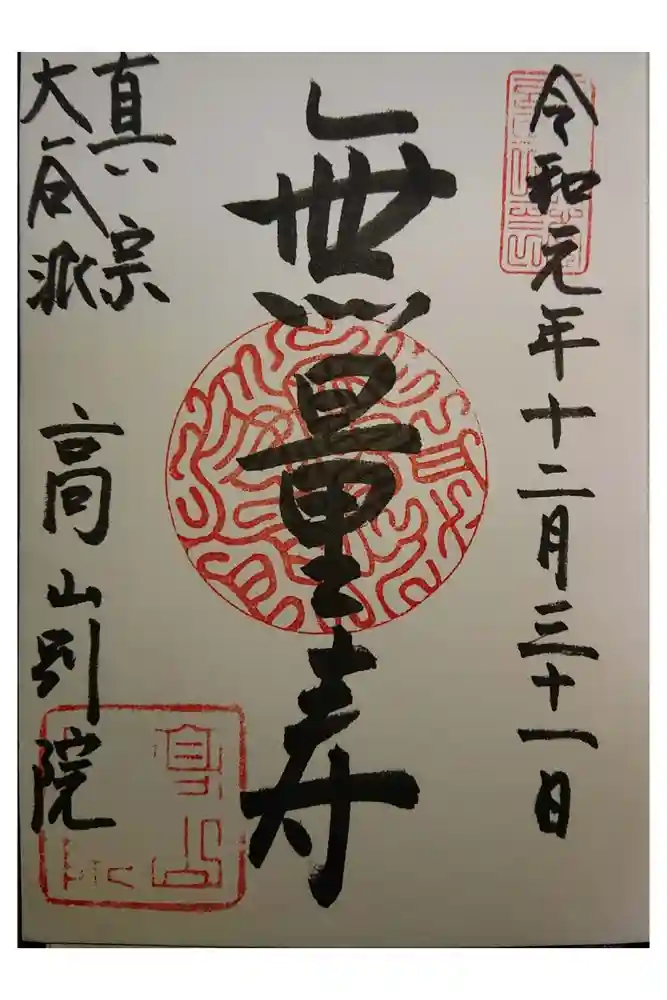 令和元年十二月三十一日
無量寿
真宗
大谷派
高山別院